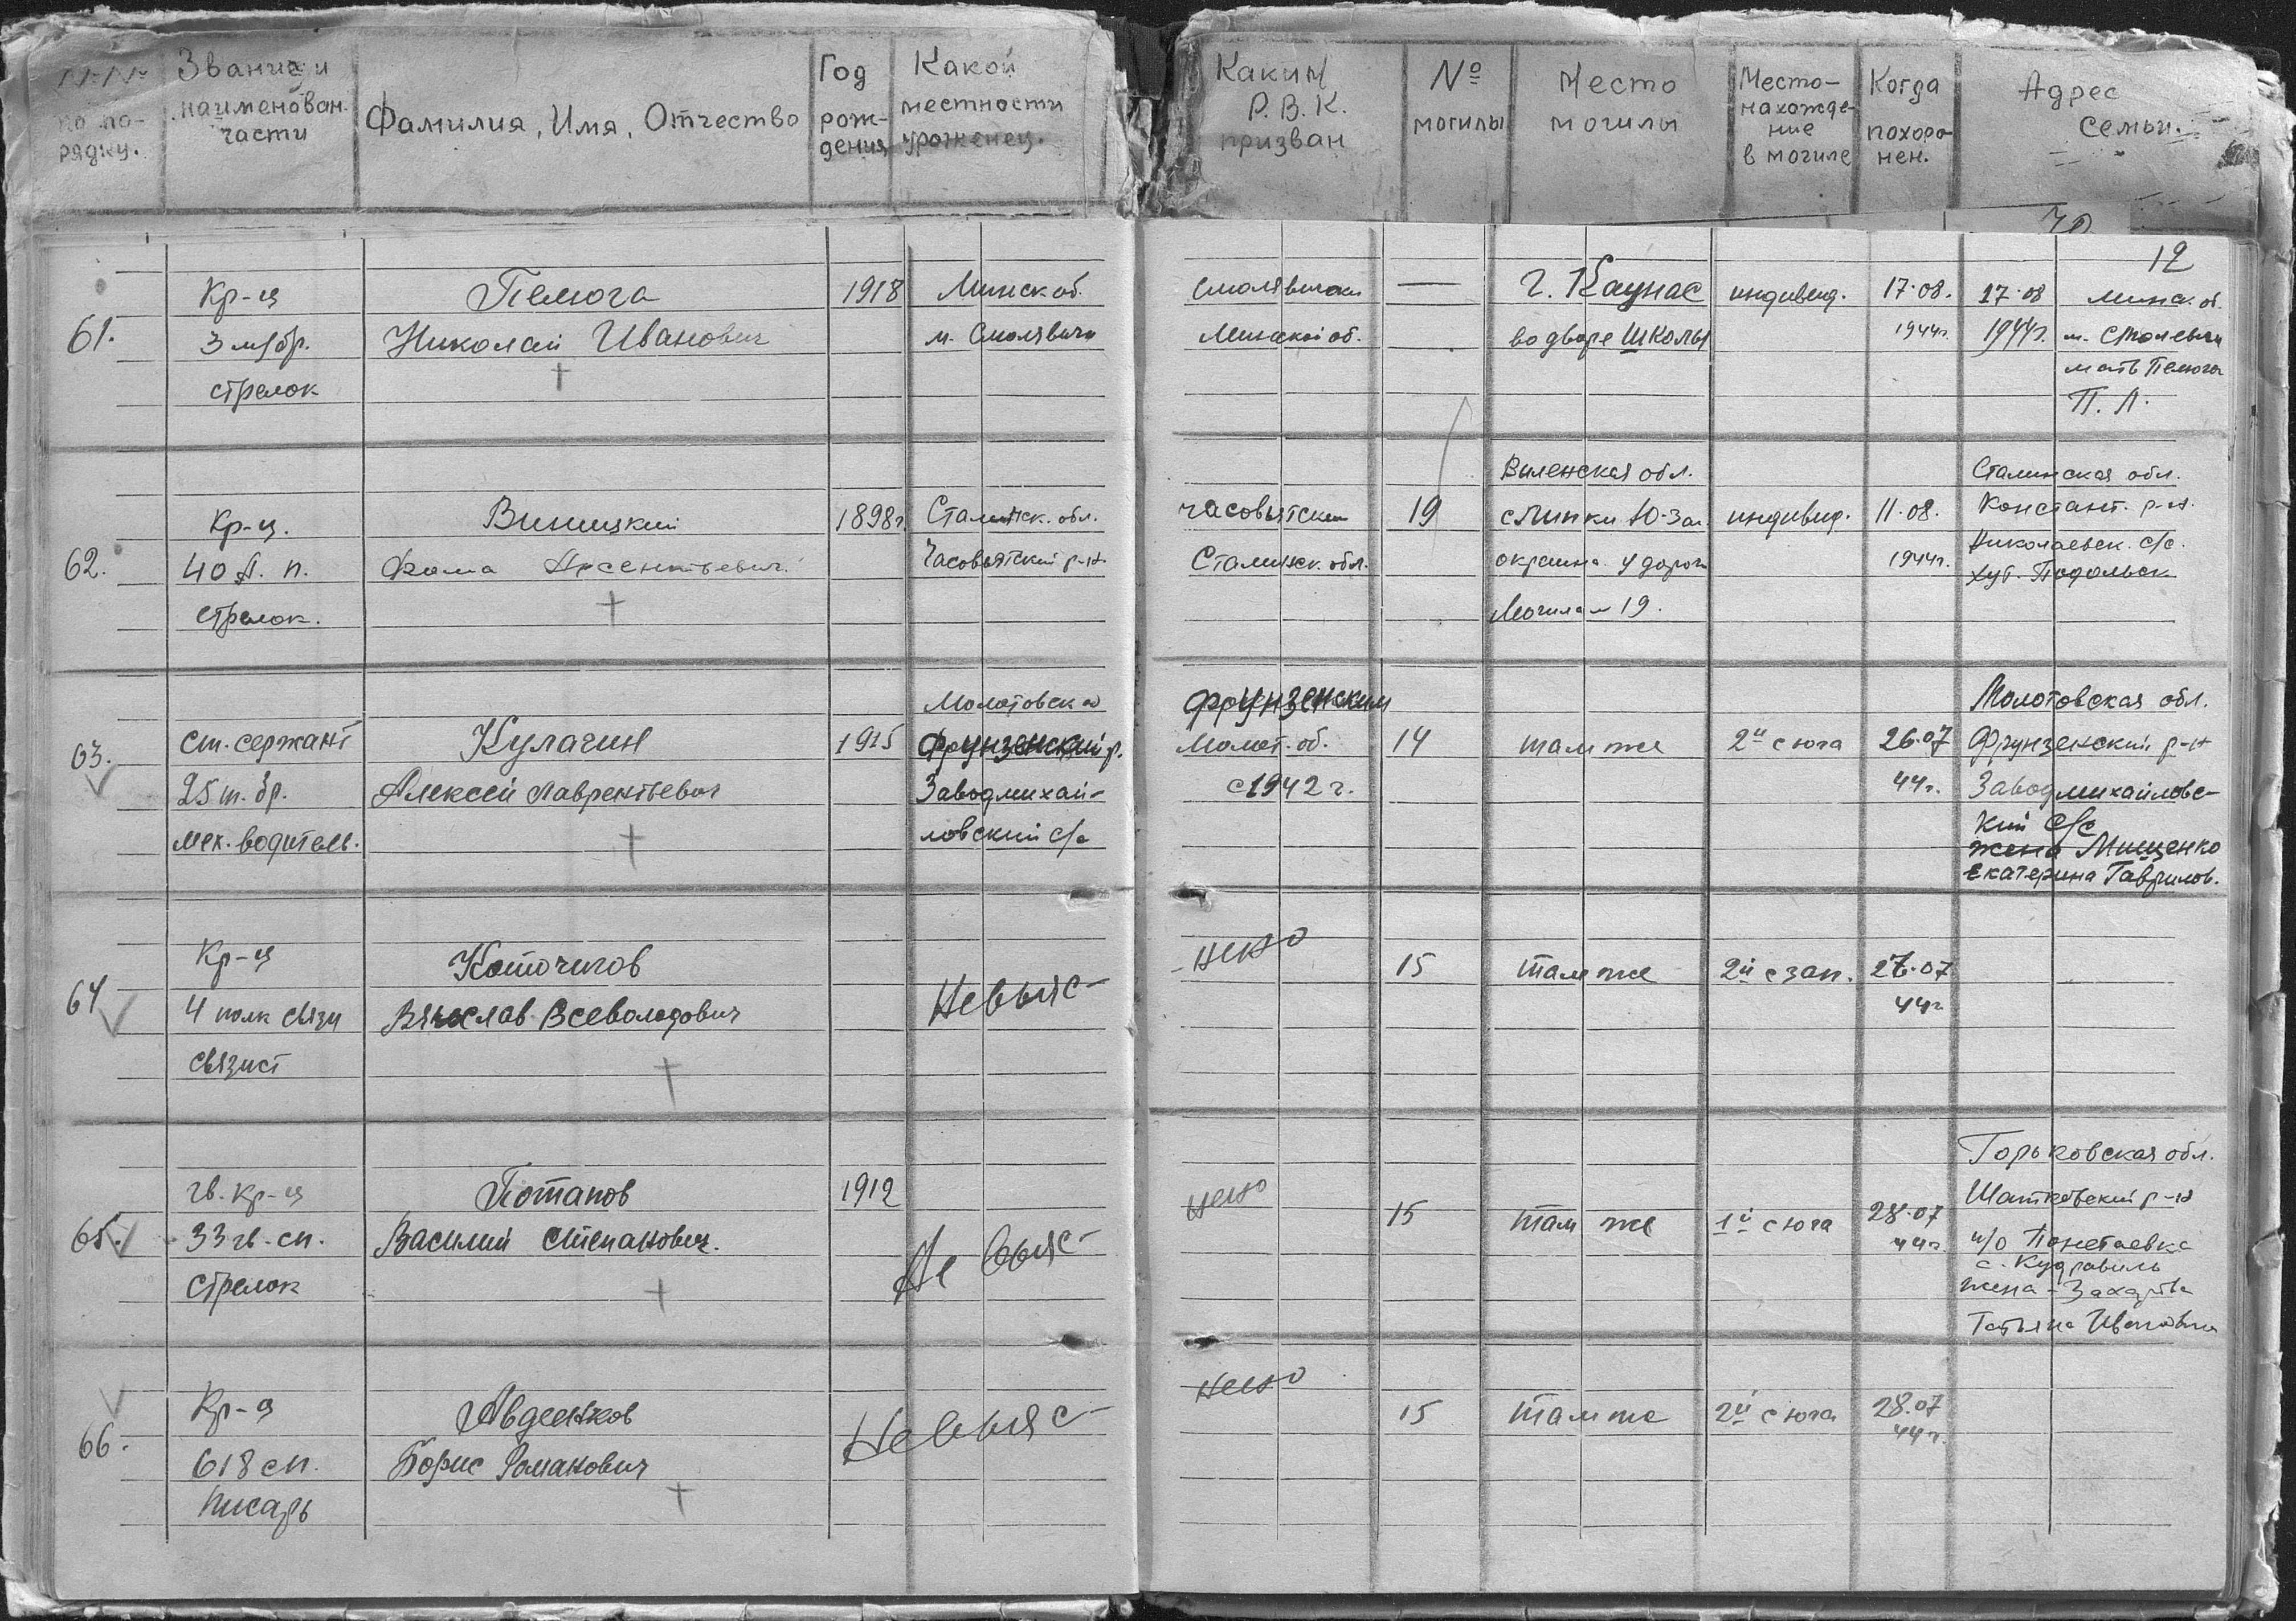 №№ по по-
рядку.
Звание и
наименован.
части
Фамилия, Имя, Отчество
Год
рож-
дения
Какой
местности
уроженец.
Каким
Р.В.К.
призван
№
могилы
Место
могилы
Место-
нахожде-
ние
в могиле
Когда
похоро-
нен.
Адрес
семьи.
12
61.
Кр-ц
3 м/бр.
стрелок
Пелюга
Николай Иванович
1918
Минск об.
м. Смолявичи
Смолявичски
Минской об.
—
г. Каунас
во дворе школы
индивид.
17.08.
1944г.
17.08
1944г.
Минск. об.
м. Смолевичи
мать Пелюга
П. Л.
62.
Кр-ц.
40 А. п.
стрелок.
Виницкий
Фома Арсентьевич
1898г.
Сталинск. обл.
Часовьятский р-н.
часовьятским
Сталинск. обл.
19
Виленская обл.
с Липки Ю-Зап.
окраина у дороги
Могила № 19.
индивид.
11.08.
1944г.
Сталинская обл.
Констант. р-н.
Николаевск. с/с.
хут. Подольск
63.
Ст. сержант
25 т. бр.
мех. водитель.
Кулагин
Алексей Лаврентьевич
1915
Молотовская
Фрунзенский р.
Заводмихай-
ловский с/с
Фрунзенским
Молот. об.
с 1942 г.
14
там же
2й с юга
26.07
44г.
Молотовская обл.
Фрунзенский р-н
Заводмихайловс-
кий с/с
жена Мищенко
Екатерина Гаврилов.
64
Кр-ц
4 полк связи
связист
Вячеслав Всеволодович
Невыяс-
-нено
15
там же
2й с зап.
27.07
44г
65.
гв. кр-ц
33 гв. сп.
стрелок
Потапов
Василий Степанович.
1912
Не выяс-
нено
15
там же
1й с юга
28.07
44г.
Горьковская обл.
Шатковский р-н
п/о Понетаевка
жена - Захарова
Татьяна Ивановна
66.
Кр-ц
618 сп.
писарь
Авдеенков
Борис Романович
Невыяс-
нено
15
там же
2й с юга
28.07
44г.